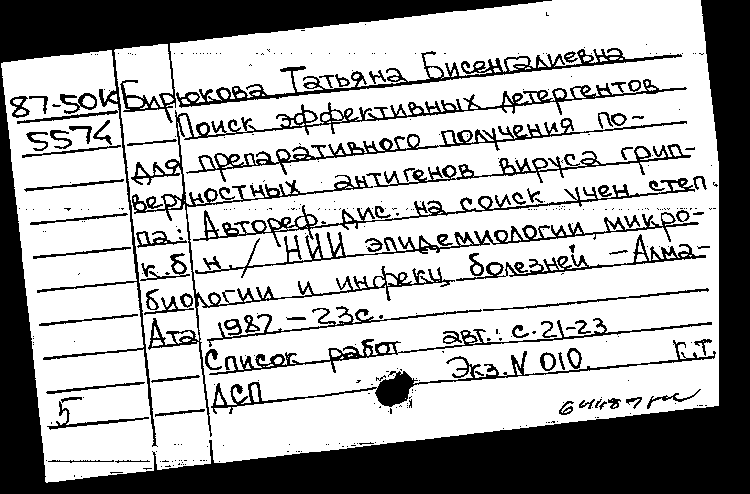 87-50К Бирюкова Татьяна Бисенгалиевна
5574 Поиск эффективных детергентов
для препаративного получения по-
верхностных антигенов вируса грип-
па: Автореф. дис. на соиск. учен. степ.
к.б.н. / НИИ эпидемиологии, микро-
биологии и инфекц. болезней. — Алма-
Ата, 1987. — 23с.
Список работ авт.: с. 21-23
ДСП Экз. N 010. К.Т.
5